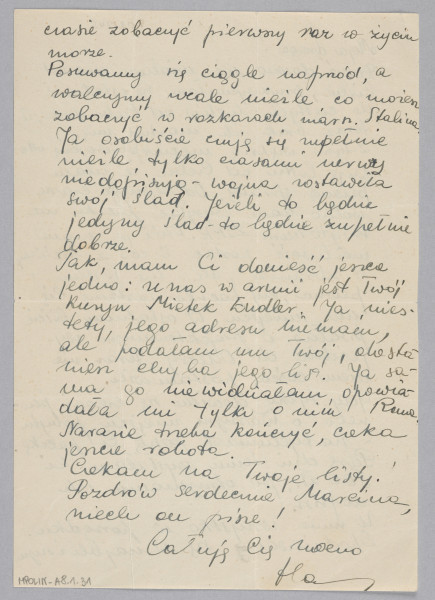 czasie zobaczyć pierwszy raz w życiu
morze.
Posuwamy się ciągle naprzód, a
walczymy wcale nieźle co możesz
zobaczyć w rozkazach marsz. Stalina.
Ja osobiście czuję się zupełnie
nieźle tylko czasami nerwy
niedopisują - wojna zostawiła
swój ślad. Jeżeli to będzie
jedyny ślad - to będzie zupełnie
dobrze.
Tak, mam Ci donieść jeszcze
jedno: u nas w armii jest Twój
kuzyn Mietek Endler. Ja nies-
tety, jego adresu nie mam,
ale podałam mu Twój, dosta
niesz chyba jego list. Ja sa-
ma go nie widziałam, opowia-
dała mi tylko o nim
Narazie trzeba kończyć, czeka
jeszcze robota.
Czekam na Twoje listy!
Pozdrów serdecznie Marcina,
niech on pisze!
Całuję Cię mocno
Ha